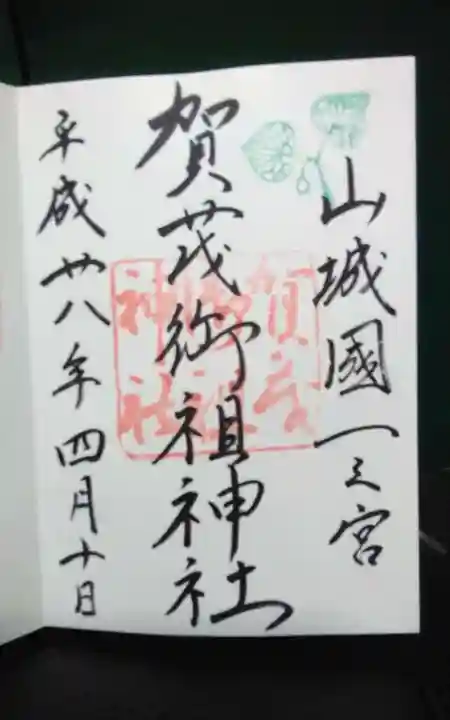 山城國一之宮
賀茂御祖神社
平成廿八年四月十日
賀茂
御祖
神社